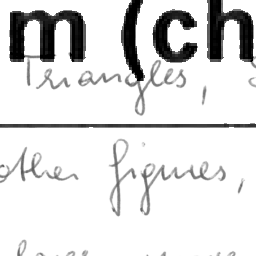 m (ch
Triangles,
other figures,